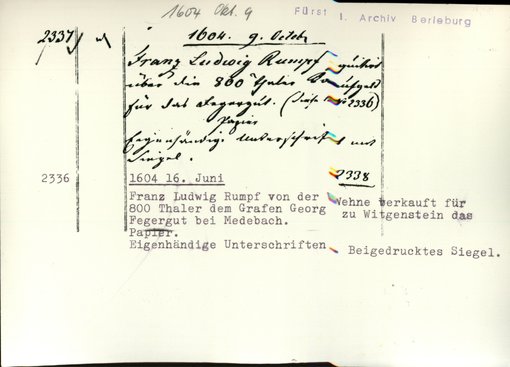 1604 Okt. 9
Fürstl. Archiv Berleburg
2337
1604. 9. Octobr
Franz Ludwig Rumpf quittirt
über die 800 Thaler Kaufgeld
für das Fegergut. (Siehe No 2336)
Papier
Eigenhändige Unterschrift und
Siegel.
2338
2336 1604 16. Juni
Franz Ludwig Rumpf von der Wehne verkauft für
800 Thaler dem Grafen Georg zu Witgenstein das
Fegergut bei Medebach.
Papier.
Eigenhändige Unterschriften. Beigedrucktes Siegel.